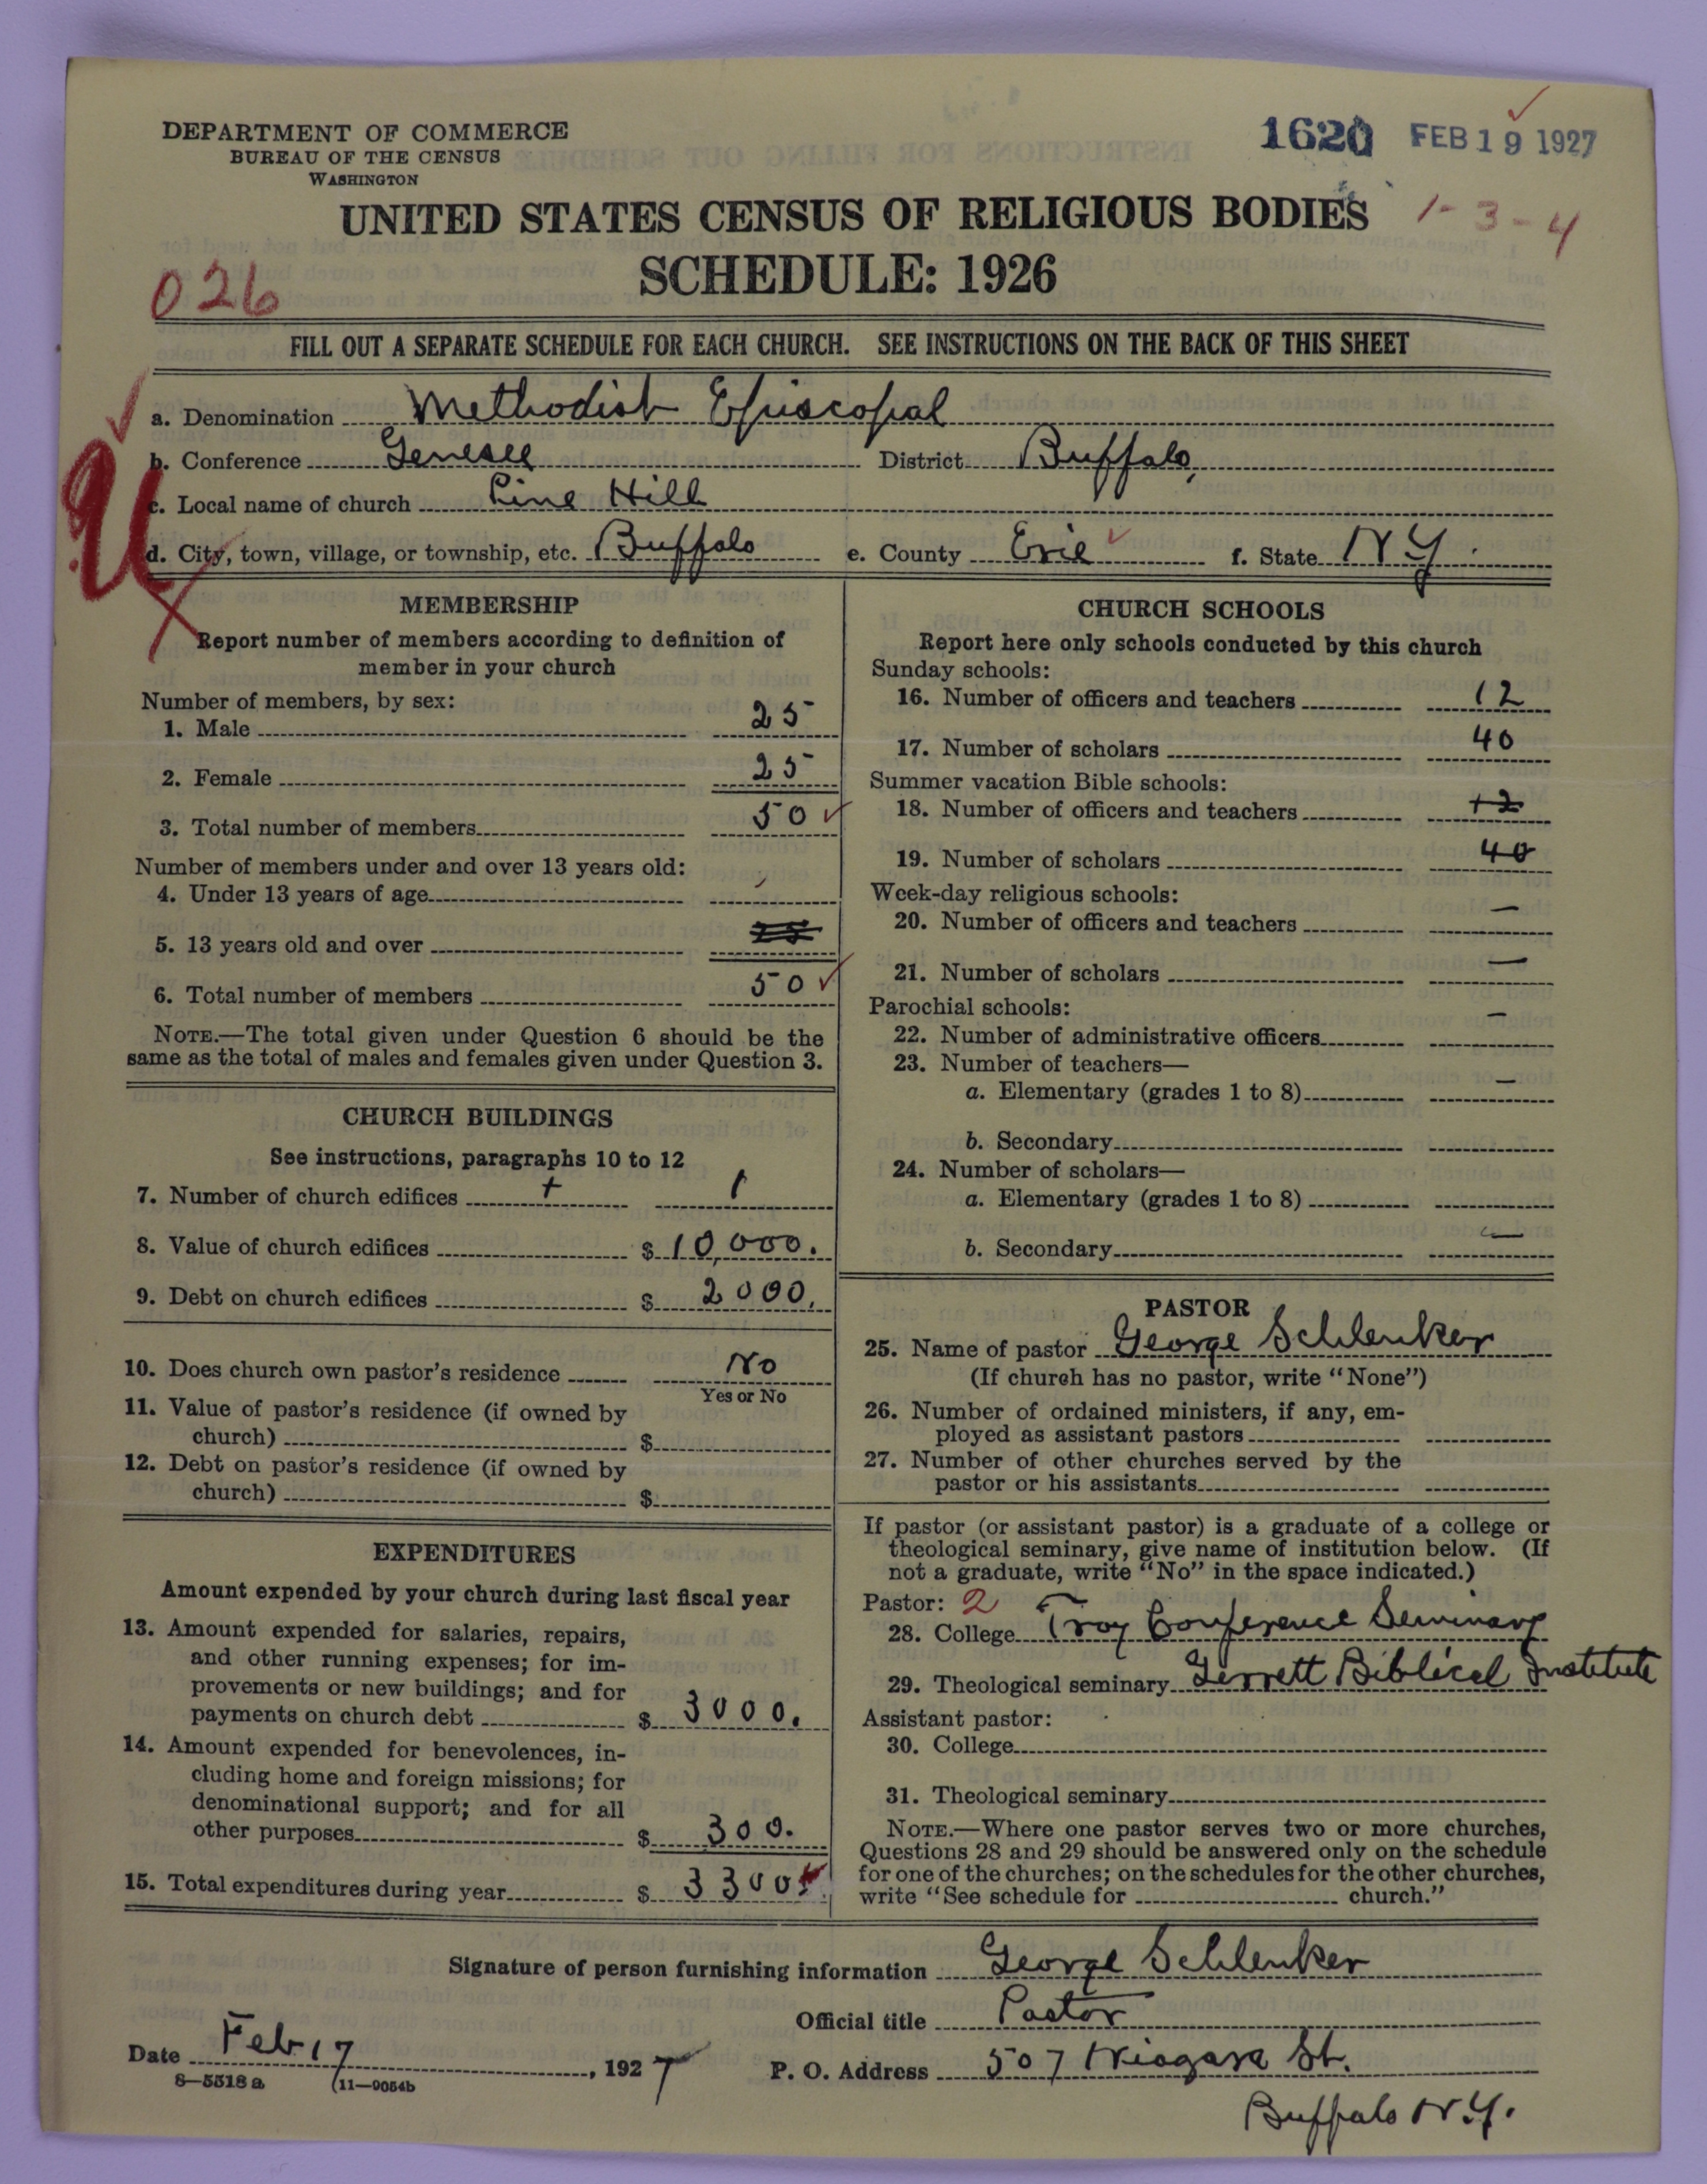 DEPARTMENT OF COMMERCE
BUREAU OF THE CENSUS
WASHINGTON
1620 FEB 19 1927
UNITED STATES CENSUS OF RELIGIOUS BODIES
1-3-4
SCHEDULE: 1926
026
FILL OUT A SEPARATE SCHEDULE FOR EACH CHURCH. SEE INSTRUCTIONS ON THE BACK OF THIS SHEET
a. Denomination Methodist Episcopal
b. Conference Genesee District Buffalo
c. Local name of church Pine Hill
d. City, town, village, or township, etc. Buffalo e. County Erie f. State N.Y.
MEMBERSHIP
Report number of members according to definition of
member in your church
Number of members, by sex:
1. Male 25
2. Female 25
3. Total number of members 50
Number of members under and over 13 years old:
4. Under 13 years of age
5. 13 years old and over
6. Total number of members 50
NOTE.—The total given under Question 6 should be the
same as the total of males and females given under Question 3.
CHURCH BUILDINGS
See instructions, paragraphs 10 to 12
7. Number of church edifices 1
8. Value of church edifices $ 10,000.
9. Debt on church edifices $ 2000.
10. Does church own pastor's residence No
Yes or No
11. Value of pastor's residence (if owned by
church) $
12. Debt on pastor's residence (if owned by
church) $
EXPENDITURES
Amount expended by your church during last fiscal year
13. Amount expended for salaries, repairs,
and other running expenses; for im-
provements or new buildings; and for
payments on church debt $ 3000.
14. Amount expended for benevolences, in-
cluding home and foreign missions; for
denominational support; and for all
other purposes $ 300.
15. Total expenditures during year $ 3300
CHURCH SCHOOLS
Report here only schools conducted by this church
Sunday schools:
16. Number of officers and teachers 12
17. Number of scholars 40
Summer vacation Bible schools:
18. Number of officers and teachers 12
19. Number of scholars 40
Week-day religious schools:
20. Number of officers and teachers —
21. Number of scholars —
Parochial schools:
22. Number of administrative officers —
23. Number of teachers—
a. Elementary (grades 1 to 8) —
b. Secondary
24. Number of scholars—
a. Elementary (grades 1 to 8)
b. Secondary —
PASTOR
25. Name of pastor George Schlenker
(If church has no pastor, write "None")
26. Number of ordained ministers, if any, em-
ployed as assistant pastors
27. Number of other churches served by the
pastor or his assistants
If pastor (or assistant pastor) is a graduate of a college or
theological seminary, give name of institution below. (If
not a graduate, write "No" in the space indicated.)
Pastor: 2
28. College Troy Conference Seminary
29. Theological seminary Gerrett Biblical Institute
Assistant pastor:
30. College
31. Theological seminary
NOTE.—Where one pastor serves two or more churches,
Questions 28 and 29 should be answered only on the schedule
for one of the churches; on the schedules for the other churches,
write "See schedule for church."
Signature of person furnishing information George Schlenker
Official title Pastor
Date Feb 17, 1927 P. O. Address 507 Niagara St.
8—5518 a (11—9054b
Buffalo N.Y.